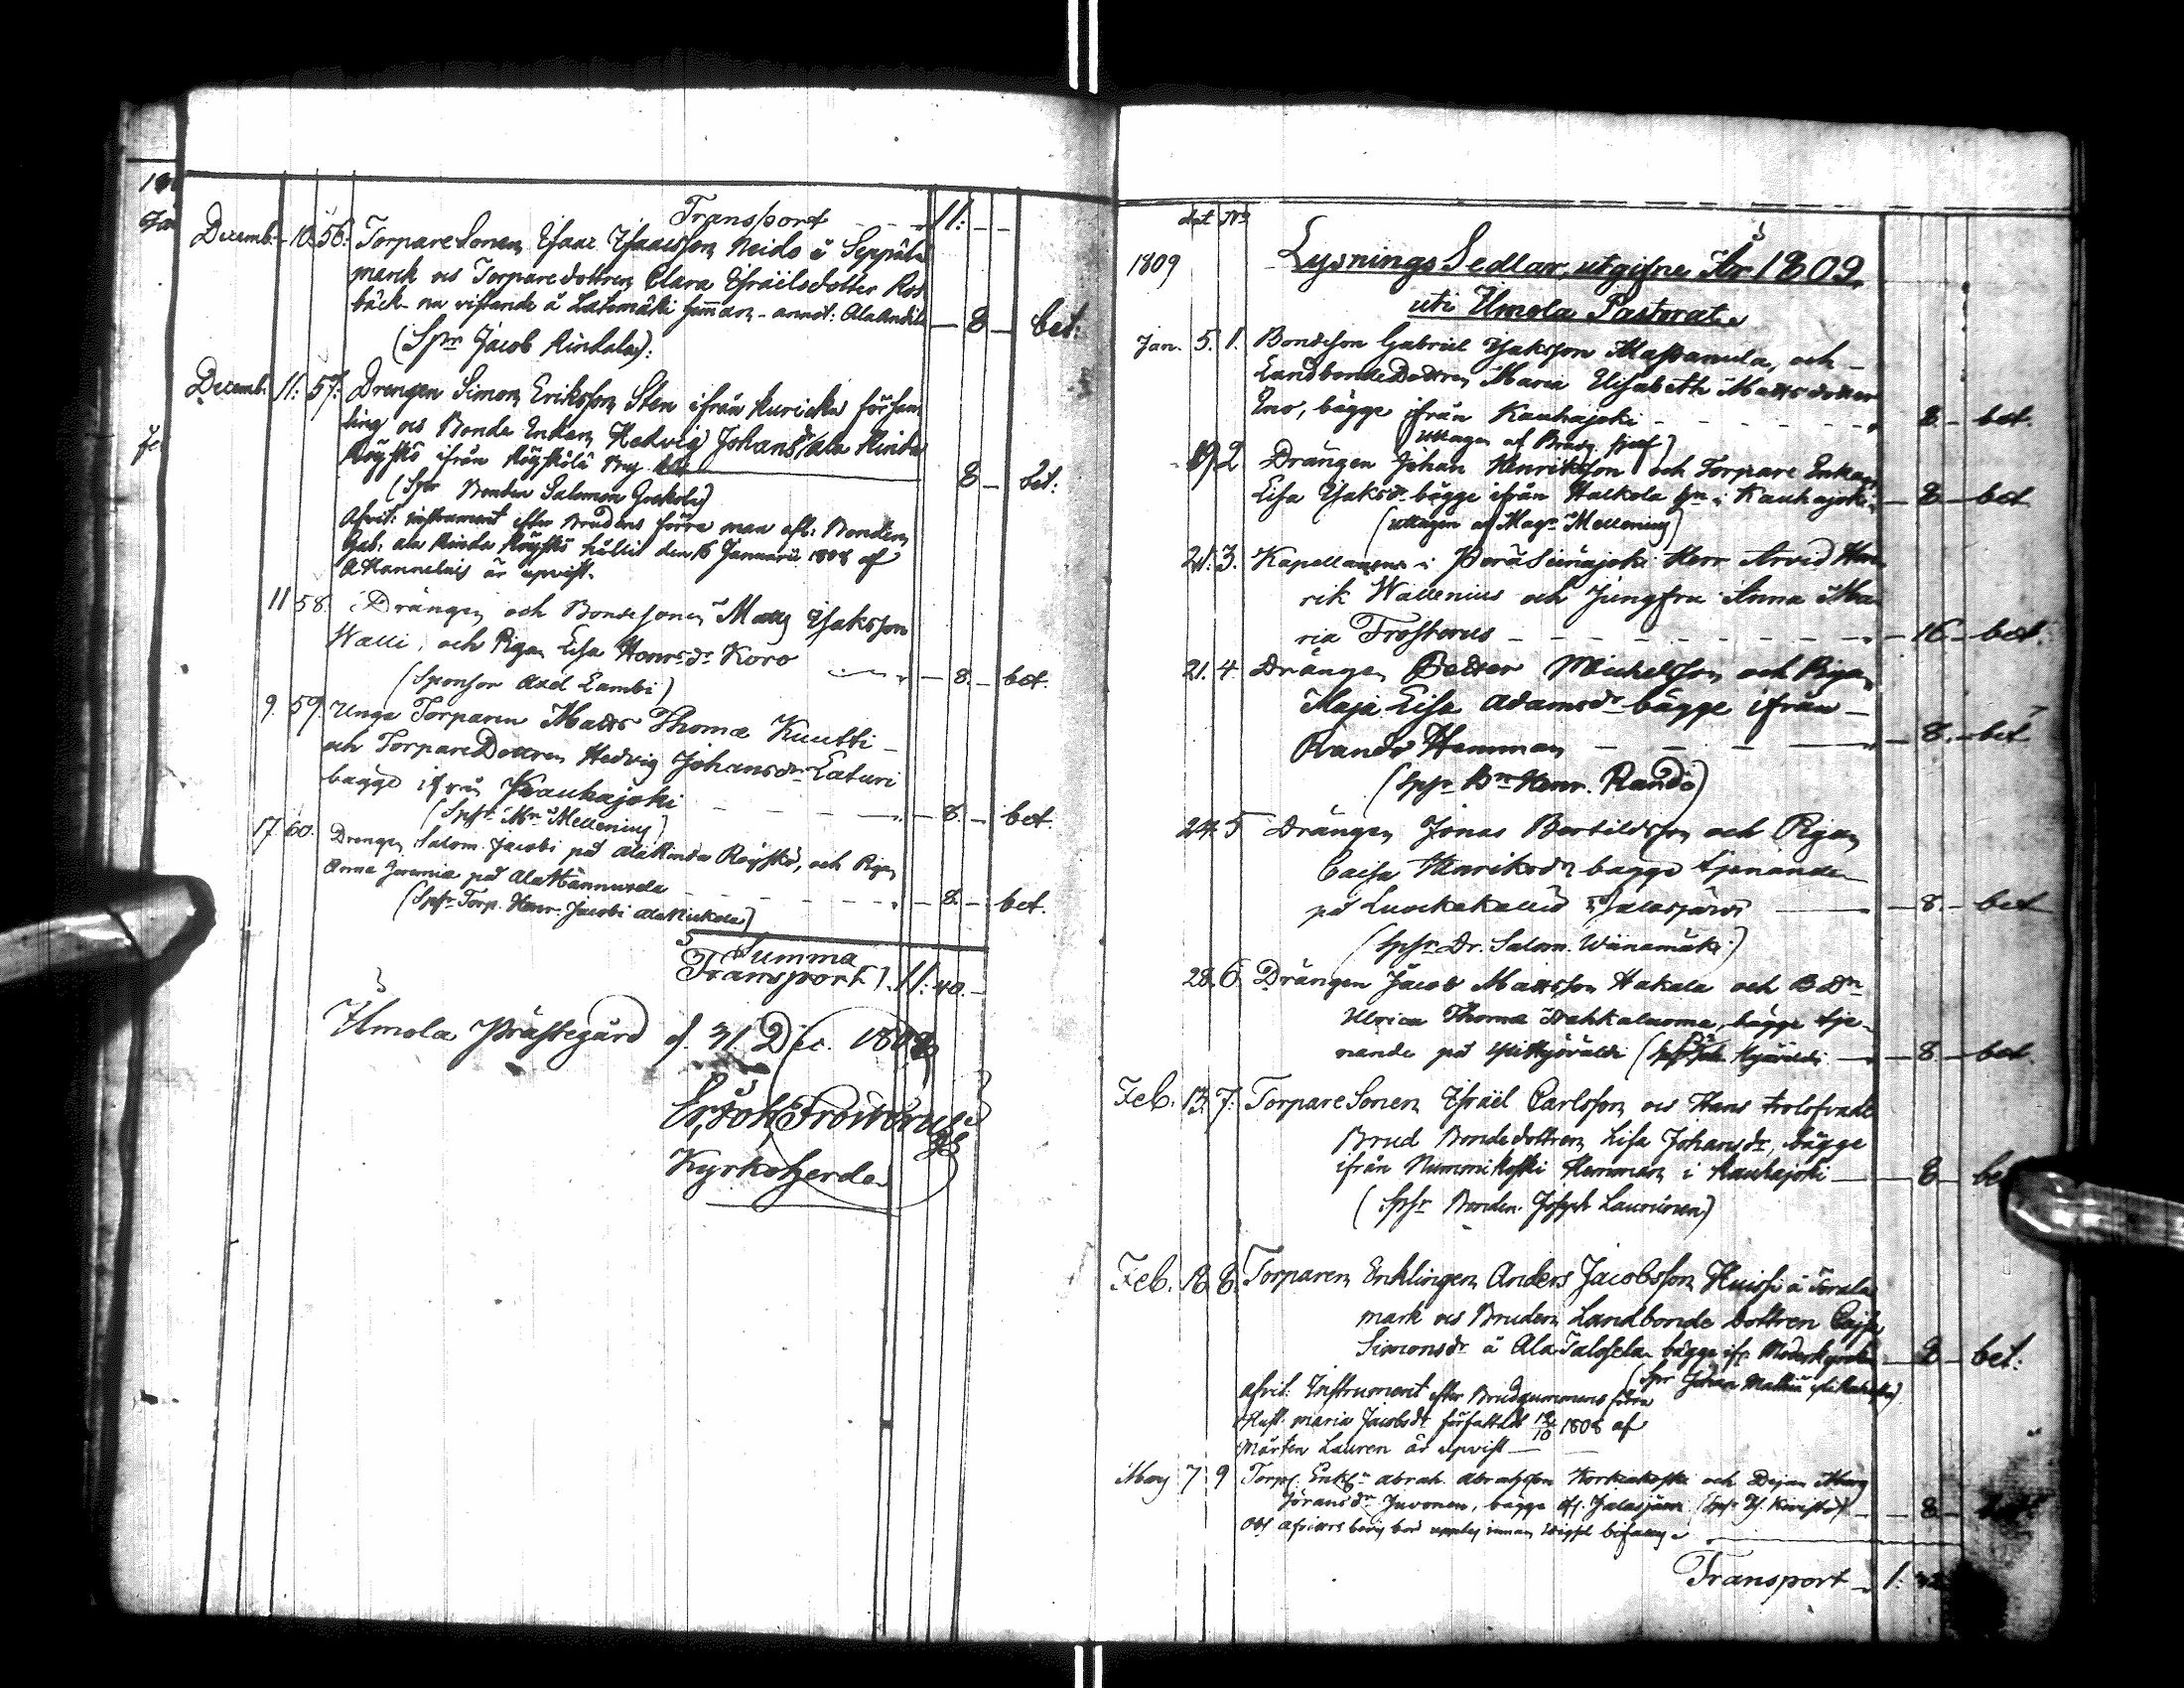 Transport - - - 11: - -
Decemb: 10. 56: Torpare Sonen Isaac Isaacsson Neido å Seppälä
marck oc Torpare dottren Clara Israelsdotter Ros
bäck nu vistande å Latomäki hemman - 8 - bet:
(Spr Jacob Rintala):
Decemb: 11: 57: Drengen Simon Eriksson Sten ifrån Kuricka försam
ling oc Bonde Enkan Hedvig Johansdr Ala Rinda
Röyskö ifrån Röyskölä By - 8 - bet:
(Spr Bonden Salomon)
Afvit: instrument efter Brudens förra man afl: Bonden
Gab: Ala Rinda Röyskö hållit den 16 Januarii 1808 af
A Hannelius är upvist.
11 58. Drängen och Bondesonen Matts Isaksson
Walli, och Pigan Lisa Henrsdr Koro - 8. - bet.
(Sponsor Axel Lambi)
9. 59. Unge Torparen Matts Thomæ Knutti -
och TorpareDottren Hedvig Johansdr Laturi
bägge ifrån Kauhajoki - - - 8. - bet.
(Spsr Mr Mellenius)
17 60. Drengen Salom. Jacobi på AlaRinda Röyskö, och Pigan
Anna Jeremiæ på AlaHannuxela - - - 8. - bet.
(Spsr Torp. Henr. Jacobi)
Summa
Transport 11: 40. -
Ilmola Prästegård d. 31 Dec. 1808
Er. Joh. Frosterus
Kyrkoherde
dat No
1809 Lysnings Sedlar, utgifne År 1809.
uti Ilmola Pastorat.
Jan. 5. 1. Bondeson Gabriel Isaksson Maßanula, och -
LandbondeDottren Maria Elisabeth Mattsdotter
Eno, bägge ifrån Kauhajoki - - - 8. - bet.
(uttagen af Brudg sjelf)
19. 2 Drängen Johan Henriksson och Torpare Enkan
Lisa Isaksdr bägge ifrån Kauhajoki - 8 - bet
(uttagen af Magr Mellenius)
21. 3. Kapellanen i PeräSeinäjoki Herr Arvid Hen
rik Wallenius och Jungfru Anna Ma
ria Frosterus - - - - 16 - bet.
21. 4. Drängen Petter Michelsson och Pigan
Maja Lisa Adamsdr bägge ifrån -
Rando Hemman - - - 8. - bet
(spsr Bn Henr. Rando)
24. 5 Drängen Jonas Bertildsson och Pigan
Caisa Henriksdr bägge tjenande
på Luockakallio i Jalasjärvi - 8. - bet
(spsr Dr. Salom. Wänämäki)
28. 6. Drängen Jacob Mattsson Hakala och BDn
Ulrica Thomæ Wahkaluoma, bägge tje-
nande på - 8. - bet.
Feb. 13. 7: Torpare Sonen Israel Carlsson oc Hans trolofvade
Brud Bondedottren Lisa Johansdr, bägge
ifrån Nummikoski Hemman i Kauhajoki - 8 - bet
(Spsr Bonden Joseph Laurinen)
Feb. 18. 8. Torparen Enklingen Anders Jacobsson Huissi å Törälä
mark oc Bruden Landbonde dottren Cajsa
Simonsdr å Ala Jaloskela bägge ifr Moderkyrkan - 8 - bet:
(Spr Johan Matthiæ
afvit: Instrument efter Brudgummens förra
Hust. Maria Jacobsdr författadt 12/10 1808 af
Mårten Lauren är upvist -
May 7 9 Torp. Enkl. Abrah. Abrahsson Korkiakoski och Dejan
Jöransdr Juvonen, bägge af Jalasjärvi - 8 -
Transport - 1: